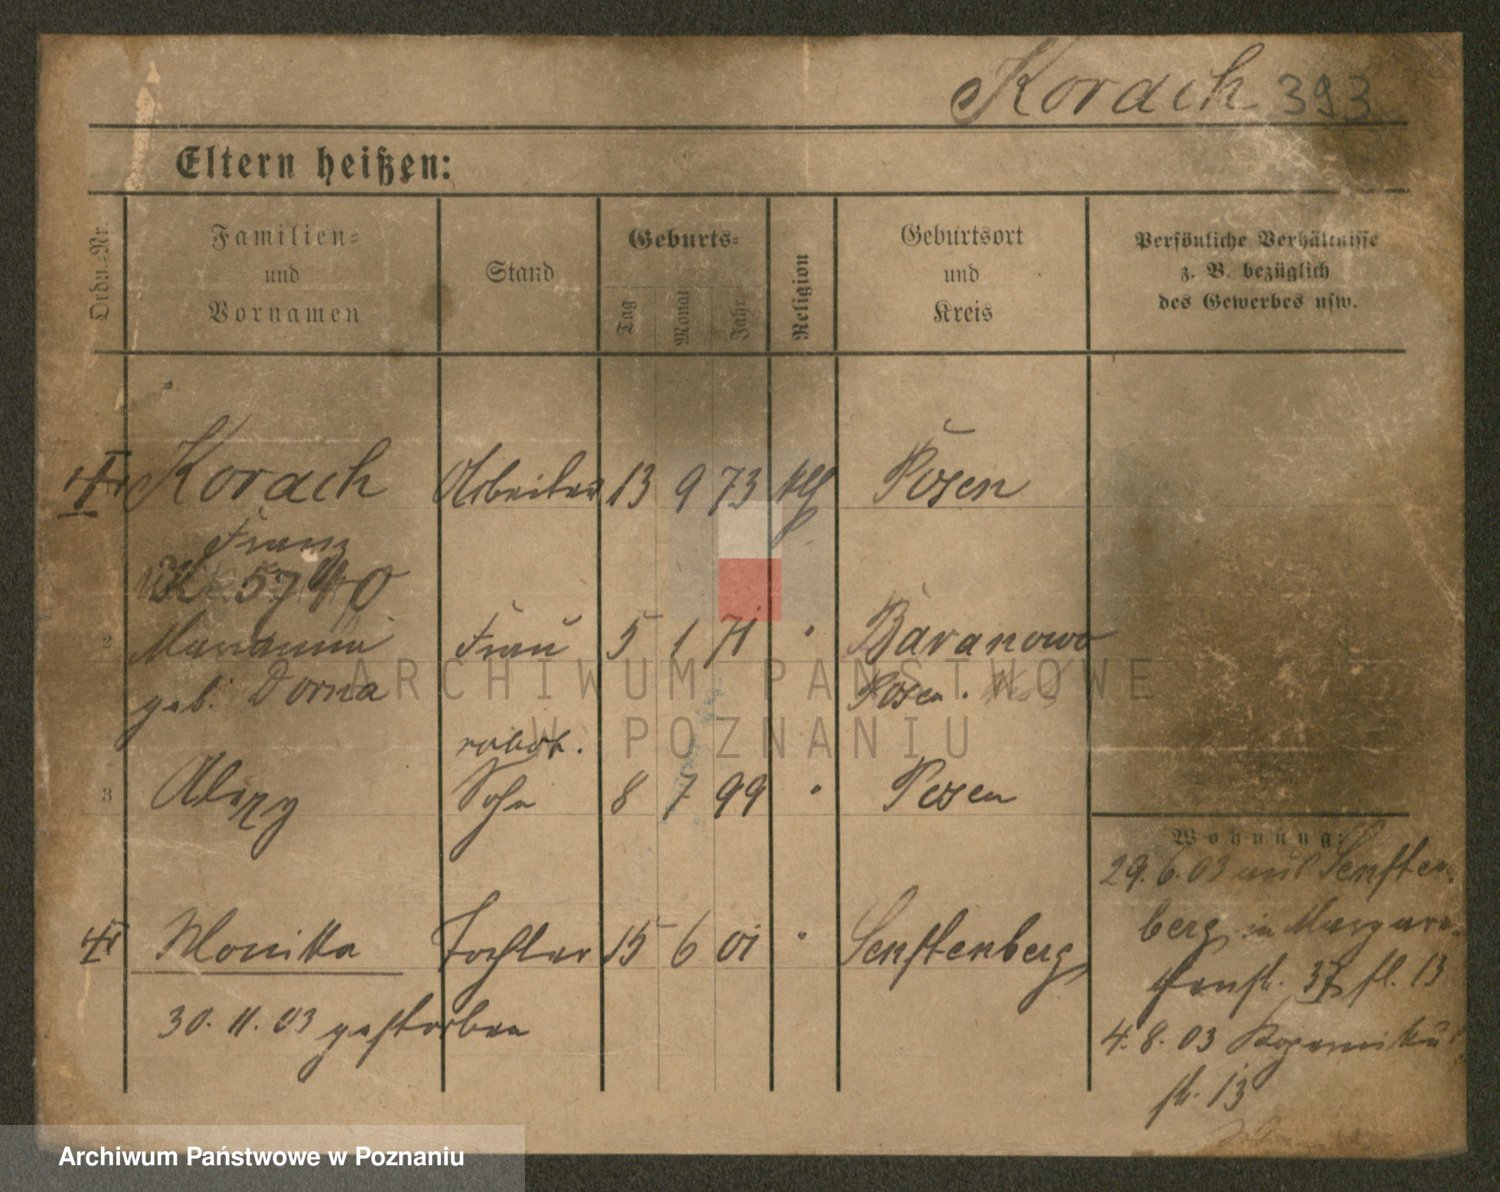 Korach 393
Eltern heißen:
Ordn.-Nr.
Familien- und Vornamen
Stand
Geburts-
Tag
Monat
Jahr
Religion
Geburtsort und Kreis
Persönliche Verhältnisse z. B. bezüglich des Gewerbes usw.
Korach Arbeiter 13 9 73 Posen
Franz
5740
2 Marianna Frau 5 1 71 " Baranowo
geb. Dorna Posen.
robot.
3 Sohn 8 7 99 " Posen
Monika Tochter 15 6 01 " Senftenberg
30. 11. 03 gestorben
Wohnung:
29. 6. 03 aus Senften-
berg in Margare-
tenstr. 37 fl. 13
4. 8. 03 Kopernikus
str. 13
ARCHIWUM PAŃSTWOWE
W POZNANIU
Archiwum Państwowe w Poznaniu